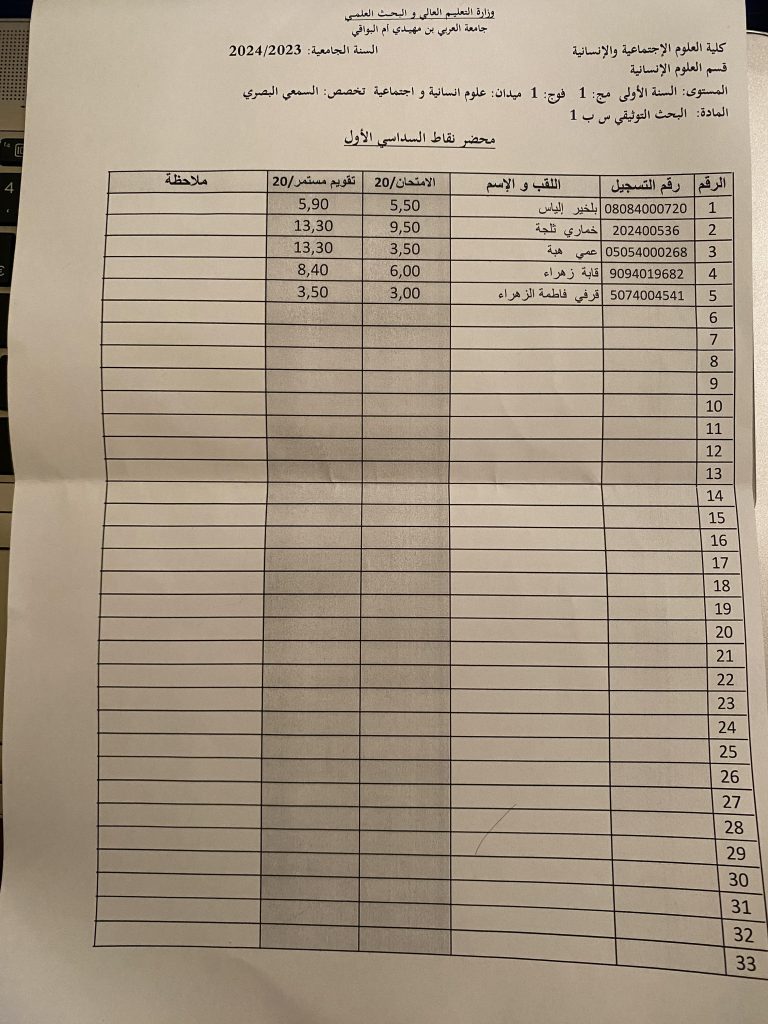 وزارة التعليم العالي و البحث العلمي
جامعة العربي بن مهيدي أم البواقي
كلية العلوم الإجتماعية والإنسانية السنة الجامعية: 2024/2023
قسم العلوم الإنسانية
المستوى: السنة الأولى مج: 1 فوج: 1 ميدان: علوم انسانية و اجتماعية تخصص: السمعي البصري
المادة: البحث التوثيقي س ب 1
محضر نقاط السداسي الأول
الرقم رقم التسجيل اللقب و الإسم الامتحان/20 تقويم مستمر/20 ملاحظة
1 08084000720 بلخير إلياس 5,50 5,90
2 202400536 خماري ثلجة 9,50 13,30
3 05054000268 عمي هبة 3,50 13,30
4 9094019682 قابة زهراء 6,00 8,40
5 5074004541 قرفي فاطمة الزهراء 3,00 3,50
6
7
8
9
10
11
12
13
14
15
16
17
18
19
20
21
22
23
24
25
26
27
28
29
30
31
32
33